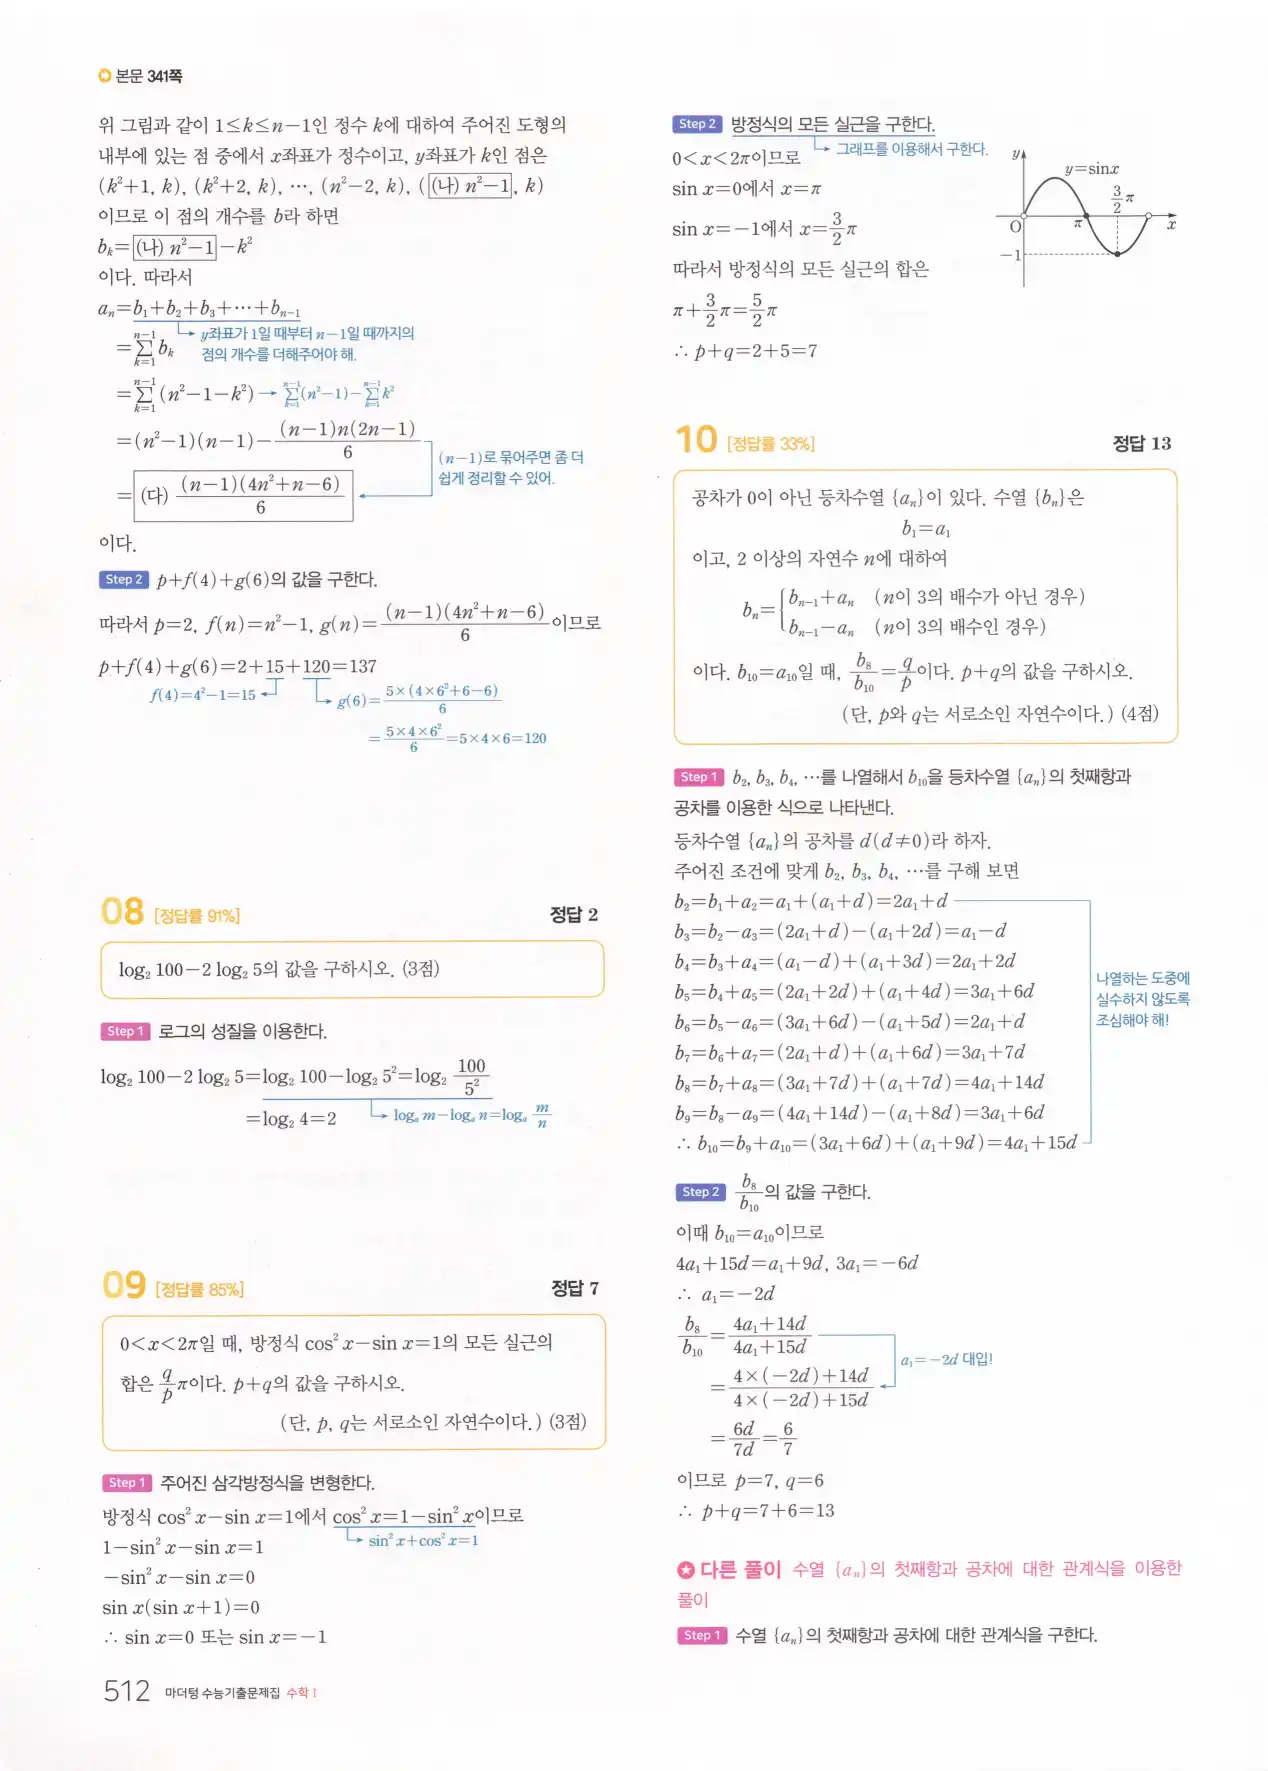 본문 341쪽
위 그림과 같이 1≤k≤n−1인 정수 k에 대하여 주어진 도형의
내부에 있는 점 중에서 x좌표가 정수이고, y좌표가 k인 점은
(k²+1, k), (k²+2, k), ⋯, (n²−2, k), ( (나) n²−1 , k)
이므로 이 점의 개수를 b라 하면
bₖ= (나) n²−1 −k²
이다. 따라서
aₙ=b₁+b₂+b₃+⋯+bₙ₋₁
y좌표가 1일 때부터 n−1일 때까지의
점의 개수를 더해주어야 해.
=∑_{k=1}^{n−1} bₖ
=∑_{k=1}^{n−1} (n²−1−k²) → ∑_{k=1}^{n−1}(n²−1)−∑_{k=1}^{n−1}k²
=(n²−1)(n−1)−\frac{(n−1)n(2n−1)}{6}
(n−1)로 묶어주면 좀 더
쉽게 정리할 수 있어.
= (다) \frac{(n−1)(4n²+n−6)}{6}
이다.
Step 2 p+f(4)+g(6)의 값을 구한다.
따라서 p=2, f(n)=n²−1, g(n)=\frac{(n−1)(4n²+n−6)}{6}이므로
p+f(4)+g(6)=2+15+120=137
f(4)=4²−1=15
g(6)=\frac{5×(4×6²+6−6)}{6}
=\frac{5×4×6²}{6}=5×4×6=120
08 [정답률 91%] 정답 2
log₂ 100−2 log₂ 5의 값을 구하시오. (3점)
Step 1 로그의 성질을 이용한다.
log₂ 100−2 log₂ 5=log₂ 100−log₂ 5²=log₂ \frac{100}{5²}
=log₂ 4=2
logₐ m−logₐ n=logₐ \frac{m}{n}
09 [정답률 85%] 정답 7
0<x<2π일 때, 방정식 cos² x−sin x=1의 모든 실근의
합은 \frac{q}{p}π이다. p+q의 값을 구하시오.
(단, p, q는 서로소인 자연수이다.) (3점)
Step 1 주어진 삼각방정식을 변형한다.
방정식 cos² x−sin x=1에서 cos² x=1−sin² x이므로
sin² x+cos² x=1
1−sin² x−sin x=1
−sin² x−sin x=0
sin x(sin x+1)=0
∴ sin x=0 또는 sin x=−1
512 마더텅 수능기출문제집 수학 Ⅰ
Step 2 방정식의 모든 실근을 구한다.
그래프를 이용해서 구한다.
0<x<2π이므로
sin x=0에서 x=π
sin x=−1에서 x=\frac{3}{2}π
따라서 방정식의 모든 실근의 합은
π+\frac{3}{2}π=\frac{5}{2}π
∴ p+q=2+5=7
y
y=sinx
\frac{3}{2}π
O
π
x
−1
10 [정답률 33%] 정답 13
공차가 0이 아닌 등차수열 {aₙ}이 있다. 수열 {bₙ}은
b₁=a₁
이고, 2 이상의 자연수 n에 대하여
bₙ={ bₙ₋₁+aₙ (n이 3의 배수가 아닌 경우)
bₙ₋₁−aₙ (n이 3의 배수인 경우)
이다. b₁₀=a₁₀일 때, \frac{b₈}{b₁₀}=\frac{q}{p}이다. p+q의 값을 구하시오.
(단, p와 q는 서로소인 자연수이다.) (4점)
Step 1 b₂, b₃, b₄, ⋯를 나열해서 b₁₀을 등차수열 {aₙ}의 첫째항과
공차를 이용한 식으로 나타낸다.
등차수열 {aₙ}의 공차를 d(d≠0)라 하자.
주어진 조건에 맞게 b₂, b₃, b₄, ⋯를 구해 보면
b₂=b₁+a₂=a₁+(a₁+d)=2a₁+d
b₃=b₂−a₃=(2a₁+d)−(a₁+2d)=a₁−d
b₄=b₃+a₄=(a₁−d)+(a₁+3d)=2a₁+2d
b₅=b₄+a₅=(2a₁+2d)+(a₁+4d)=3a₁+6d
b₆=b₅−a₆=(3a₁+6d)−(a₁+5d)=2a₁+d
b₇=b₆+a₇=(2a₁+d)+(a₁+6d)=3a₁+7d
b₈=b₇+a₈=(3a₁+7d)+(a₁+7d)=4a₁+14d
b₉=b₈−a₉=(4a₁+14d)−(a₁+8d)=3a₁+6d
∴ b₁₀=b₉+a₁₀=(3a₁+6d)+(a₁+9d)=4a₁+15d
나열하는 도중에
실수하지 않도록
조심해야 해!
Step 2 \frac{b₈}{b₁₀}의 값을 구한다.
이때 b₁₀=a₁₀이므로
4a₁+15d=a₁+9d, 3a₁=−6d
∴ a₁=−2d
\frac{b₈}{b₁₀}=\frac{4a₁+14d}{4a₁+15d}
a₁=−2d 대입!
=\frac{4×(−2d)+14d}{4×(−2d)+15d}
=\frac{6d}{7d}=\frac{6}{7}
이므로 p=7, q=6
∴ p+q=7+6=13
다른 풀이 수열 {aₙ}의 첫째항과 공차에 대한 관계식을 이용한
풀이
Step 1 수열 {aₙ}의 첫째항과 공차에 대한 관계식을 구한다.